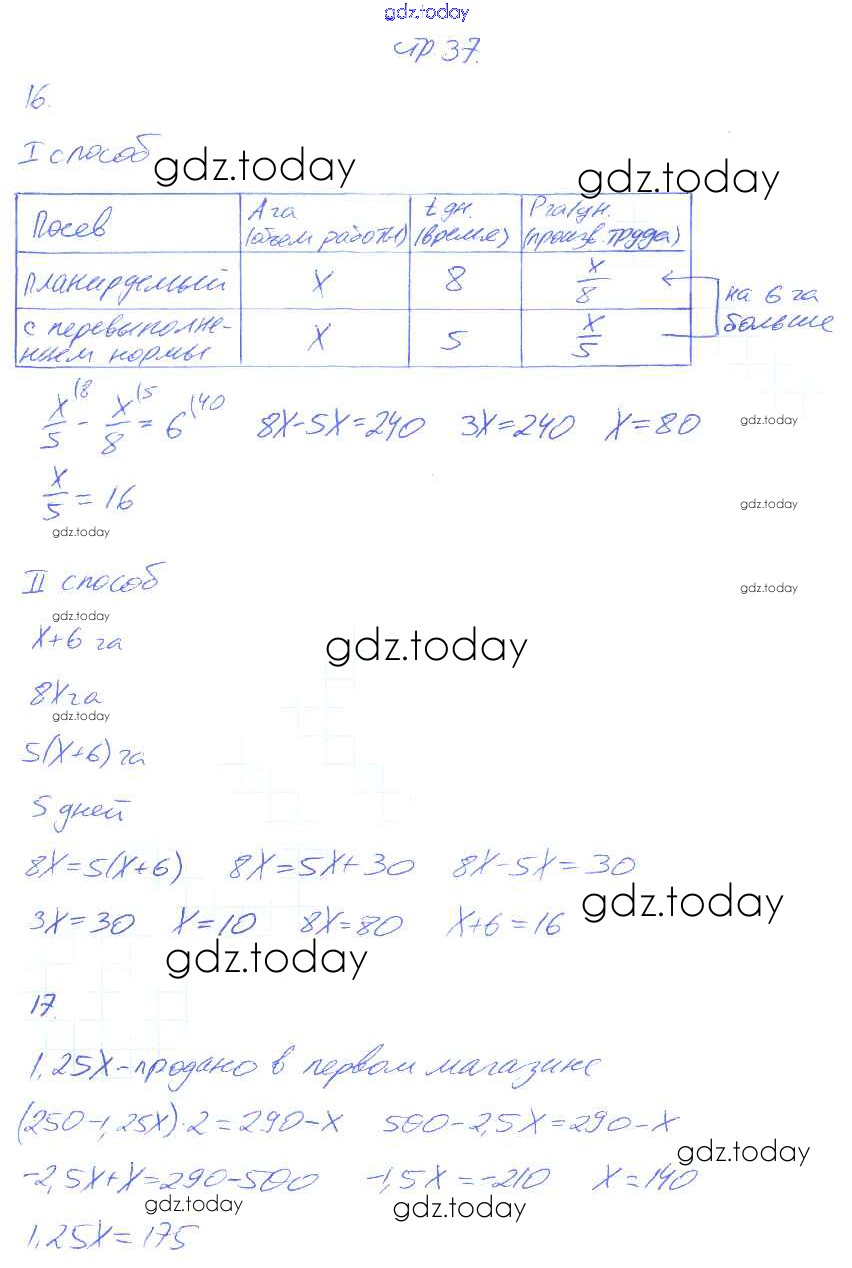 gdz.today
стр 37.
16.
I способ
gdz.today
gdz.today
Посев A га (объем работы) t дн. (время) P га/дн. (произв. труда)
планируемый x 8 x/8
с перевыполнением нормы x 5 x/5
на 6 га больше
x/5 (8 - x/8 (5 = 6 (40 8x-5x=240 3x=240 x=80
gdz.today
x/5 = 16
gdz.today
gdz.today
II способ
gdz.today
gdz.today
x+6 га
gdz.today
8x га
gdz.today
5(x+6) га
5 дней
8x=5(x+6) 8x=5x+30 8x-5x=30
gdz.today
3x=30 x=10 8x=80 x+6=16
gdz.today
17.
1,25x-продано в первом магазине
(250-1,25x)·2=290-x 500-2,5x=290-x
gdz.today
-2,5x+x=290-500 -1,5x=-210 x=140
gdz.today
gdz.today
1,25x=175